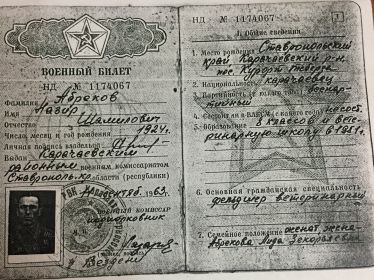 ВОЕННЫЙ БИЛЕТ
НД № 1174067
Фамилия Абреков
Имя Назир
Отчество Шамилович
Число, месяц и год рождения 1924г.
Личная подпись владельца
Выдан Карачаевским
районным военным комиссариатом
Ставрополь. области (республики)
октяб. 1963г.
ВОЕННЫЙ КОМИССАР
подполковник
НД № 1174067
1
I. Общие сведения
1. Место рождения Ставропольский
край Карачаевский р-н
пос. Курорт Теберда
2. Национальность карачаевец
3. Партийность
беспартийный
4. Состоит ли в ВЛКСМ (с какого года) не сост.
5. Образование 8 классов и вете-
ринарную школу в 1941г.
6. Основная гражданская специальность
фельдшер ветеринарный
7. Семейное положение женат, жена-
Абрекова Лида